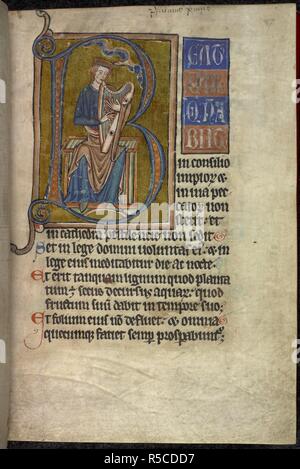 B
EAT
VS
QVI A
BIIT
in consilio
impior⁊ et
in uia pec
cator non
stetit et
in cathedra pestilencie non sedit
Set in lege domini uoluntas ei⁊ et in
lege eius meditabitur die ac nocte.
Et erit tanquam lignum quod planta
tum ÷ secus decursus aquar⁊ quod
fructum suũ dabit in tempore suo;
Et folium eius nõ defluet ⁊ omnia
quecumque faciet semp prosperabunt᷑
alamy
R5CCD7